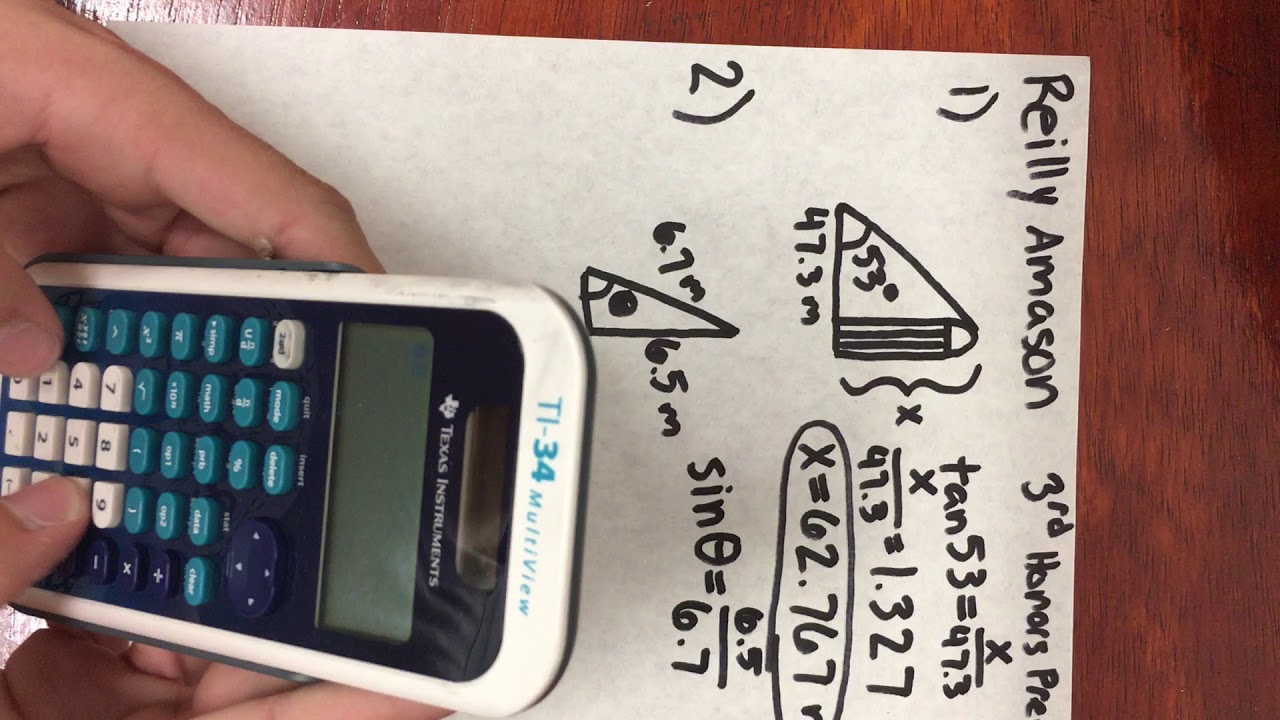 Reilly Amason 3rd Honors Pre
1)
53°
47.3 m
x
tan53 = x/47.3
x/47.3 = 1.327
x = 62.767
2)
6.7 m
θ
6.5 m
sinθ = 6.5/6.7
TI-34 MultiView
TEXAS INSTRUMENTS
quit insert stat
2nd mode delete
U n/d n/d % data clear
simp math prb
π x10ⁿ op1 op2 ÷
x² √ ( ) ×
^ 7 8 9 −
4 5
1 2
0 .